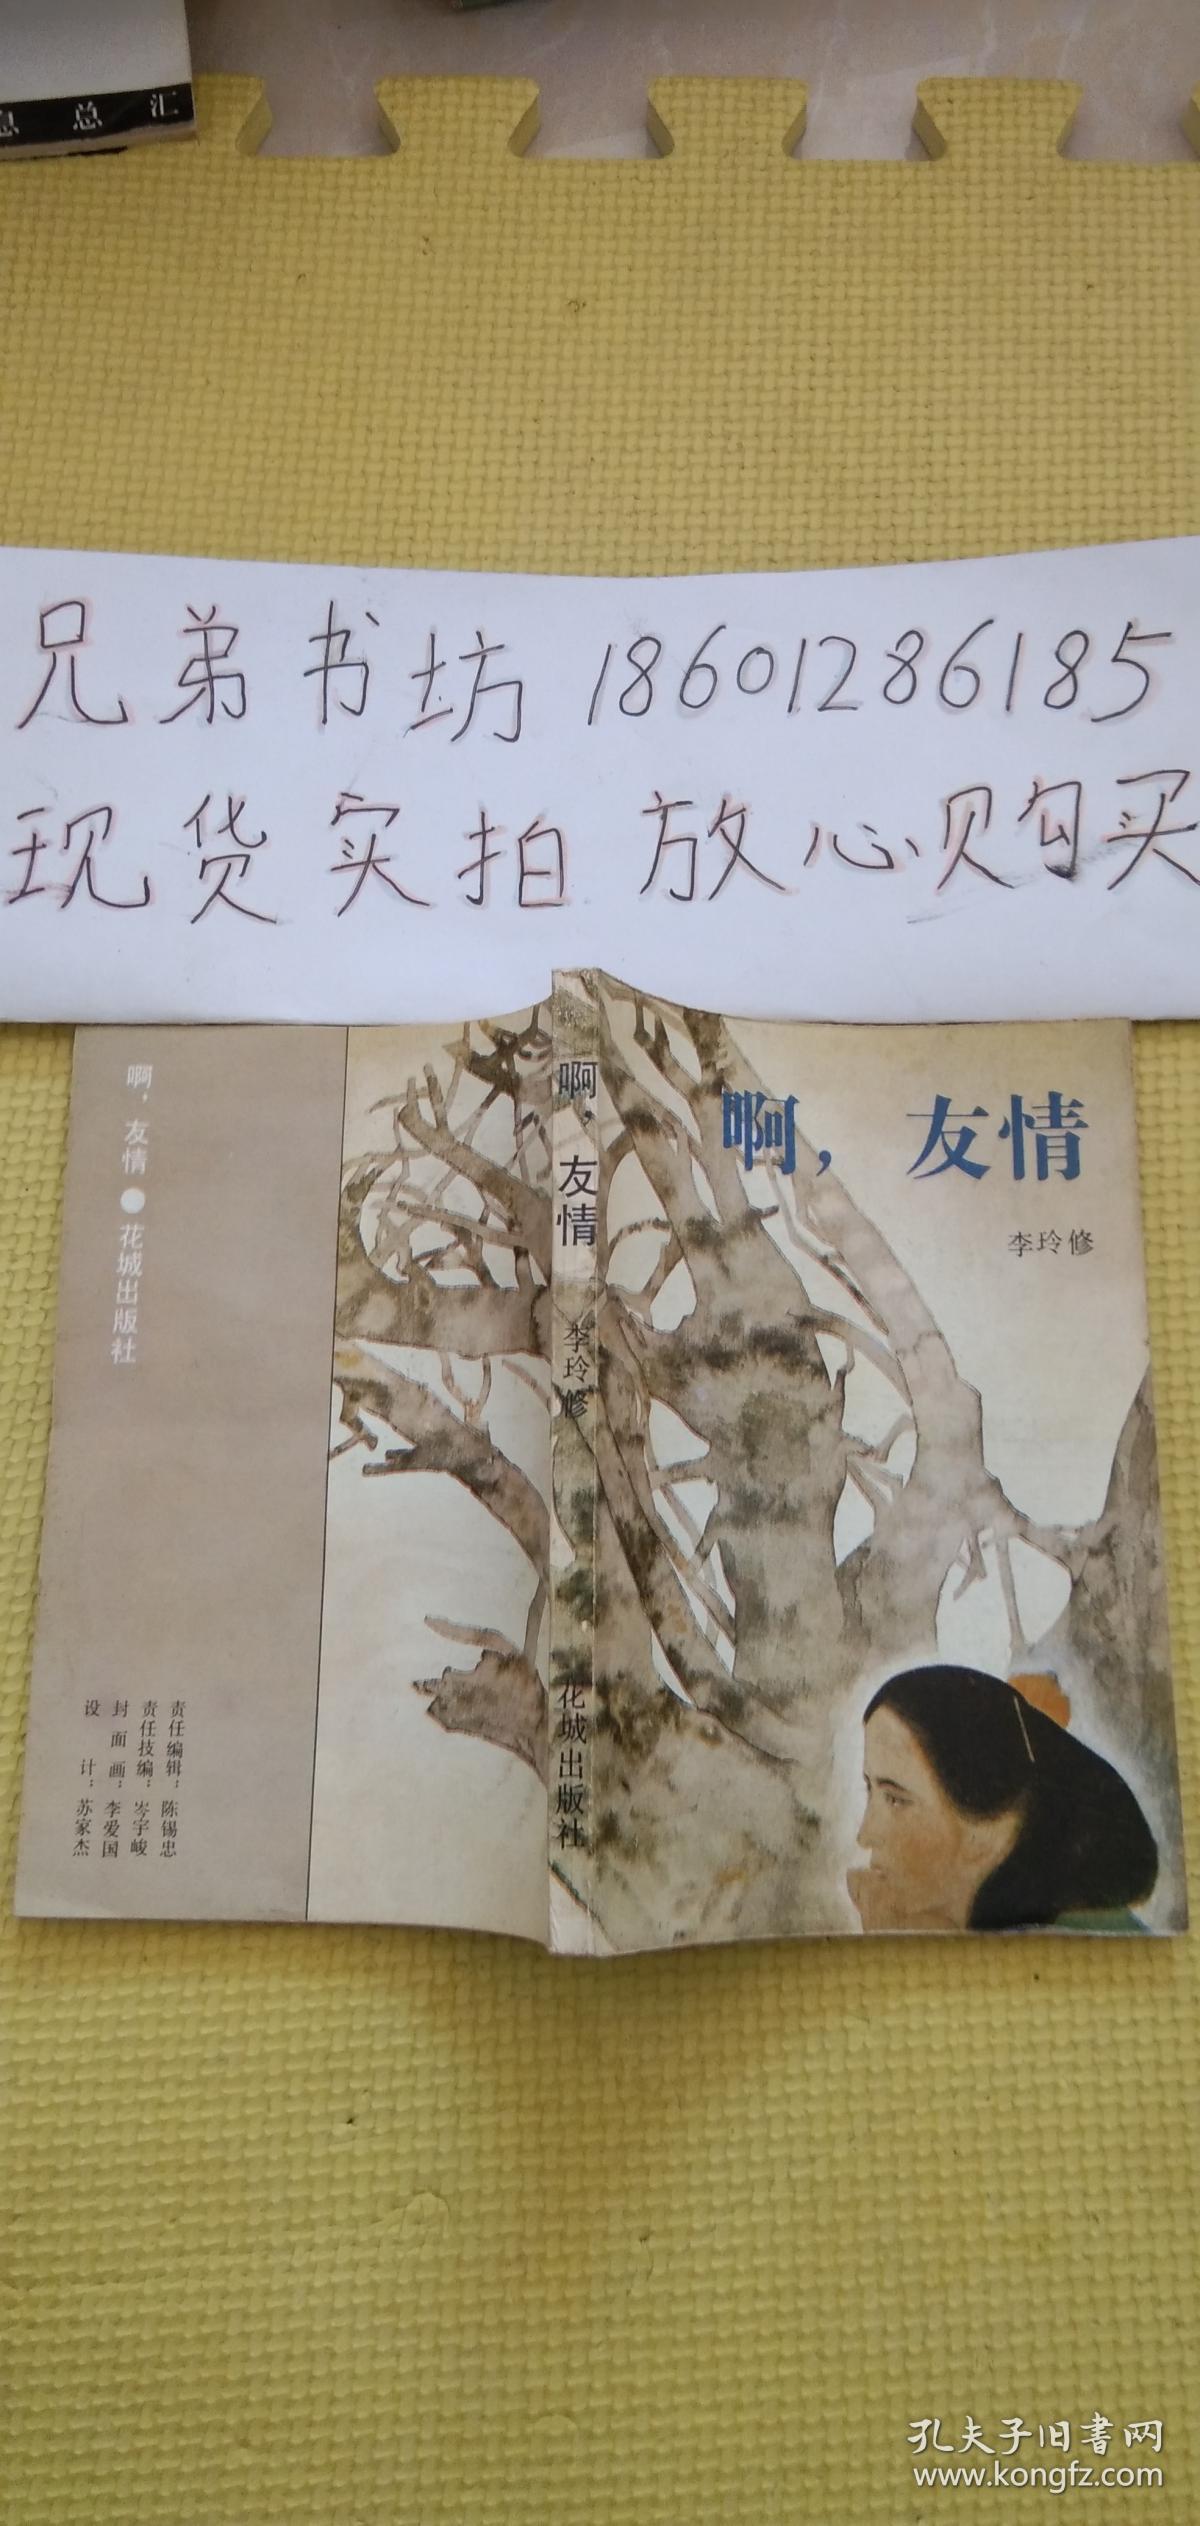 息总汇
兄弟书坊 18601286185
现货实拍 放心购买
啊，友情
李玲修
啊，友情
李玲修
花城出版社
啊，友情●花城出版社
责任编辑：陈锡忠
责任技编：岑宇峻
封面画：李爱国
设计：苏家杰
孔夫子旧书网
www.kongfz.com